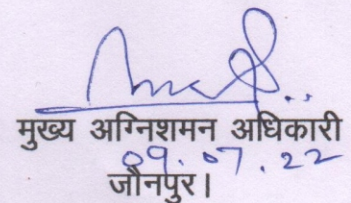 मुख्य अग्निशमन अधिकारी
09.07.22
जौनपुर।